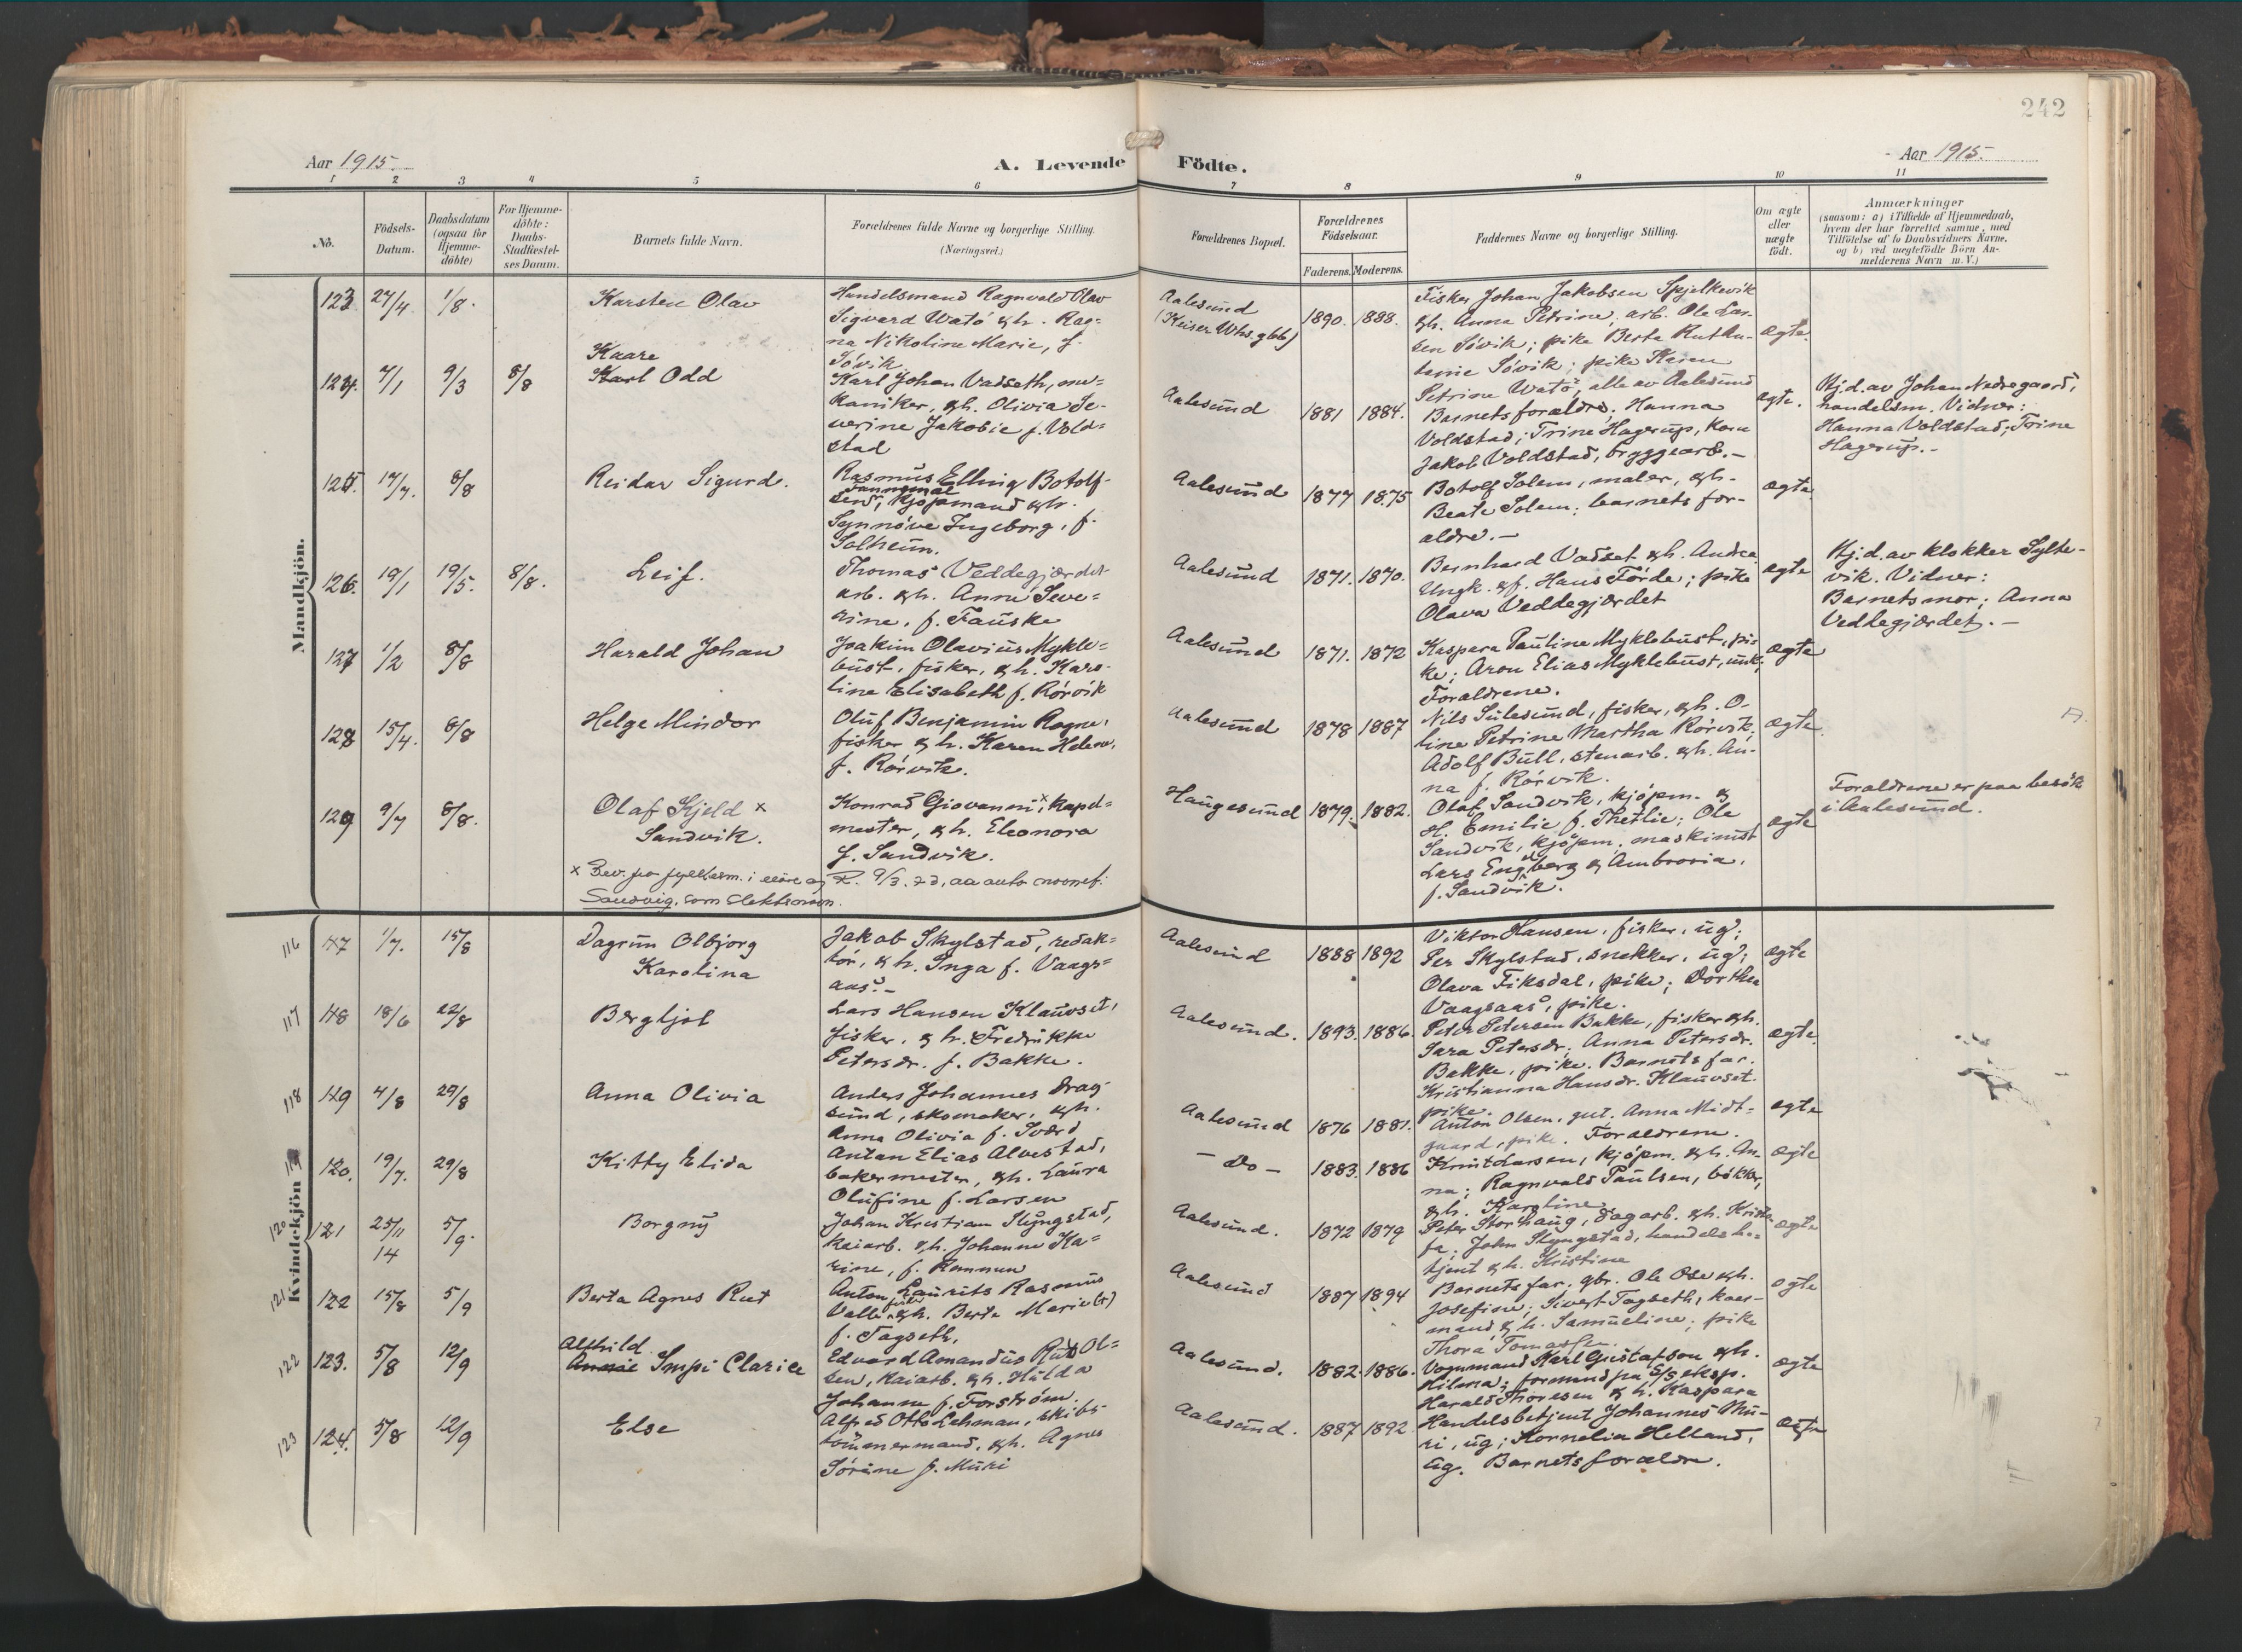 242
Aar 1915.
A. Levende Födte.
Aar 1915.
1 2 3 4 5 6 7 8 9 10 11
No.
Födsels-
Datum.
Daabsdatum
(ogsaa for
Hjemme-
döbte)
For Hjemme-
döbte:
Daabs-
Stadfæstel-
ses Datum.
Barnets fulde Navn.
Forældrenes fulde Navne og borgerlige Stilling.
(Næringsvei.)
Forældrenes Bopæl.
Forældrenes
Födselsaar.
Faderens. Moderens.
Faddernes Navne og borgerlige Stilling.
Om ægte
eller
uægte
födt.
Anmærkninger
(saasom: a) i Tilfælde af Hjemmedaab,
hvem der har forrettet samme, med
Tilföielse af to Daabsvidners Navne,
og b) ved uægtefödte Börn An-
melderens Navn m. V.)
Mandkjön.
123 27/4. 1/8.
Karsten Olav
Handelsmand Ragnvald Olav
Sigvard Watö & h. Rag-
na Nikoline Marie, f.
Sövik
Aalesund
(Keiser Whs. gt 66)
1890. 1888.
Fisker Johan Jakobsen Spjelkevik
& h. Anna Petrine; arb. Ole Lar-
sen Sövik; pike Berta Rut An-
tonie Sövik; pike Karen
Petrine Watö, alle av Aalesund
ægte.
124. 7/1 9/3 8/8
Kaare
Karl Odd
Karl Johan Vadseth, me-
kaniker, & h. Olivia Se-
verine Jakobie f. Vold-
stad
Aalesund
1881 1884.
Barnets forældre; Hanna
Voldstad; Trine Hagerup, kone
Jakob Voldstad, bryggearb. –
ægte.
Hj.d. av Johan Nedregaard,
handelsm. Vidner:
Hanna Voldstad; Trine
Hagerup. –
125. 17/7. 8/8
Reidar Sigurd.
Rasmus Elling Botolf-
sen, kjöpmand & h.
Synnöve Ingeborg, f.
Solheim.
Aalesund
1877 1875
Botolf Solem, maler, & h.
Beate Solem; barnets for-
ældre. –
ægte
126. 19/1 19/5. 8/8.
Leif.
Thomas Veddegjærdet
arb. & h. Anne Seve-
rine, f. Fauske
Aalesund
1871. 1870.
Bernhard Vadset & h. Andrea
Ungk. & f. Hans Förde; pike
Olava Veddegjærdet
ægte
Hj.d. av klokker Sylte-
vik. Vidner:
Barnets mor; Anna
Veddegjærdet. –
127 1/2 8/8
Harald Johan
Joakim Olavius Mykle-
bust, fisker, & h. Karo-
line Elisabeth f. Rörvik
Aalesund
1871. 1872
Kaspara Pauline Myklebust, pi-
ke; Aron Elias Myklebust, unk;
Forældrene.
ægte
128 15/4. 8/8
Helge Mindor
Oluf Benjamin Rogne,
fisker & h. Karen Helene,
f. Rörvik.
Aalesund
1878 1887
Nils Sulesund, fisker, & h. O-
line Petrine Martha Rörvik;
Adolf Bull, stenarb. & h. An-
na f. Rörvik.
ægte.
129 9/7 8/8.
Olaf Kjeld ×
Sandvik.
Konrad Giovanni, × kapel-
mester, & h. Eleonora
f. Sandvik.
Haugesund
1879. 1882.
Olaf Sandvik, kjöpm. &
H. Emilie f. Thetlie; Ole
Sandvik, kjöpm; maskinist
Lars Engberg & Ambrosia,
f. Sandvik.
ægte
Forældrene er paa besök
i Aalesund.
Sandvig. som
Kvindekjön
116 117 1/7. 15/8
Dagrun Olbjorg
Karolina
Jakob Skylstad, redak-
tör, & h. Inga f. Vaags-
aas. –
Aalesund
1888 1892
Viktor Hansen, fisker, ug;
Per Skylstad, snekker, ug;
Olava Fiksdal, pike; Dorthea
Vaagsaas, pike.
ægte
117 118 18/6 22/8
Bergljot
Lars Hansen Klauvset,
fisker, & h. Fredrikke
Petersdr. f. Bakke.
Aalesund.
1893. 1886.
Peter Petersen Bakke, fisker & h.
Sara Petersdr. Anna Petersdr.
Bakke, pike. Barnets far.
Kristianna Hansdr. Klauvset.
pike.
ægte.
118 119 4/8 29/8
Anna Olivia
Anders Johannes Drag-
sund, skomaker, & h.
Anna Olivia f. Sværd
Aalesund
1876 1881.
Anton Olsen, gut. Anna Midt-
gaard, pike. Forældrene.
ægte
119 120. 19/7. 29/8
Kitty Elida
Anton Elias Alvestad,
bakermester, & h. Laura
Olufine f. Larsen
– Do –
1883. 1886
Knut Larsen, kjöpm. & h. An-
na; Ragnvald Paulsen, bökker,
& h. Karoline
ægte
120 121 25/11 14 5/9.
Borgny
Johan Kristian Slyngstad,
kaiarb. & h. Johanne Ka-
rine, f. Rommen
Aalesund.
1872 1879
Peter Storhaug, dagarb. & h. Krista
fa; John Slyngstad, handelsbe-
tjent & h. Kristine
ægte
121 122 15/8 5/9
Berta Agnes Rut
Anton Laurits Rasmus
Valle fisker & h. Berte Marie (?)
f. Tagseth.
Aalesund
1887 1894
Barnets far, gbr. Ole Ose & h.
Josefine; Sivert Tagseth, kaar-
mand & h. Samueline; pike
Thora Tomassen.
ægte
122 123. 5/8 12/9
Alfhild
Annie Impi Clarice
Edvard Amandus Rud Ol-
sen, kaiarb. & h. Hulda
Johanne f. Forström.
Aalesund.
1882. 1886.
Vognmand Karl Gustafson & h.
Hilma; formand pa D/S eksp.
Harald Thoresen & h. Kaspara
ægte
123 124. 5/8 12/9
Else
Alfred Otto Lehman, skibs-
tömmermand, & h. Agnes
Sörine f. Muri
Aalesund.
1887 1892
Handelsbetjent Johannes Mu-
ri, ug; Kornelia Helland,
ug. Barnets forældre.
ægte